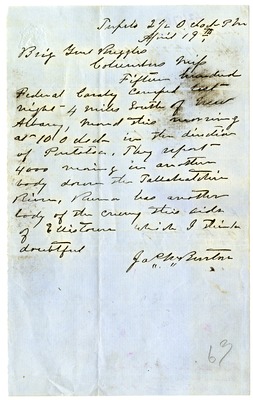 Tupelo 2 ½ O clock P M
April 19th
Brig Genl Ruggles
Columbus Miss
Fifteen hundred
Federal Cavalry Camped last
night 4 miles South of New
Albany, moved this morning
at 10 O clock in the direction
of Pontotoc, They report
4000 moving in another
body down the Tallahatchie
River, Rumor has another
body of the enemy this side
of Ellistown which I think
doubtful
Burton
63